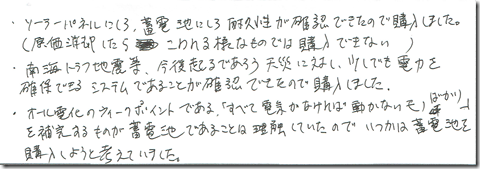 ・ソーラーパネルにしろ、蓄電池にしろ耐久性が確認できたので購入しました。
(原価償却したら こわれる様なものでは購入できない)
・南海トラフ地震等、今後起るであろう天災に対し、少しでも電力を
確保できるシステムであることが確認できたので購入しました。
・オール電化のウィークポイントである、「すべて電気がなければ動かないモノばかり」
を補完するものが蓄電池であることは理解していたので いつかは蓄電池を
購入しようと考えていました。